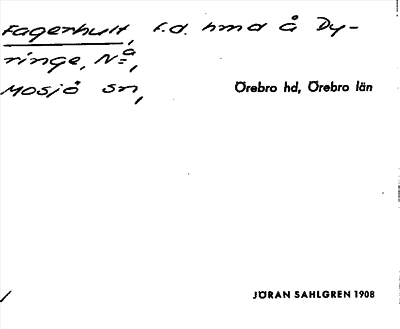 Fagerhult, f.d. hmd å Dy-
ringe, Nª,
Mosjö sn,
Örebro hd, Örebro län
JÖRAN SAHLGREN 1908